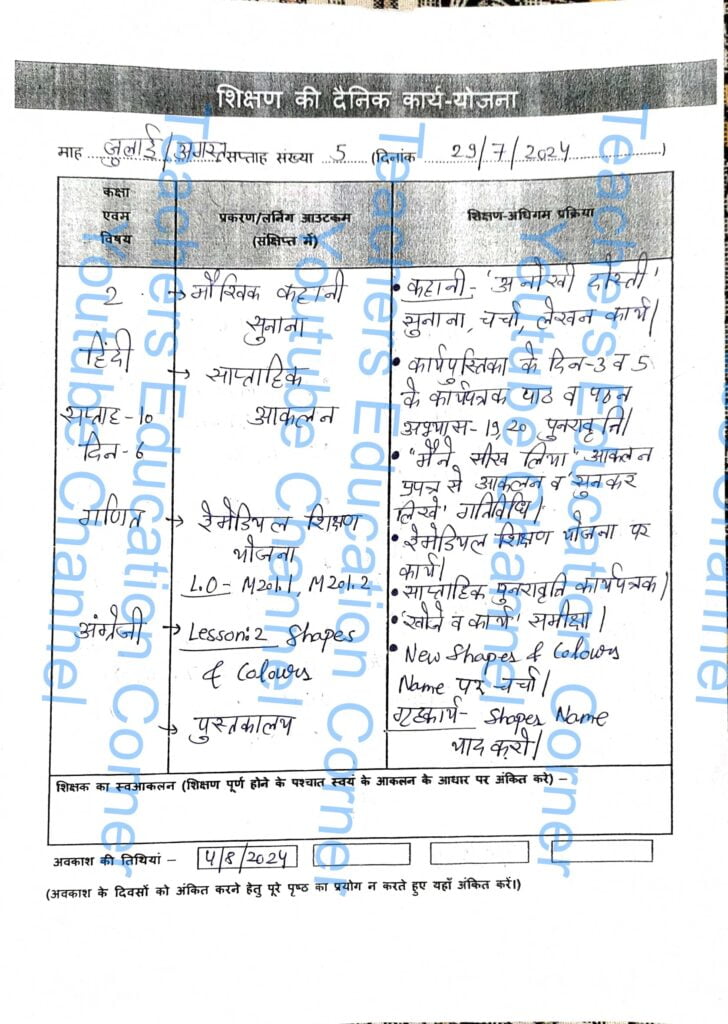 शिक्षण की दैनिक कार्य-योजना
माह जुलाई/अगस्त सप्ताह संख्या 5 (दिनांक 29/7/2024)
कक्षा एवम विषय
प्रकरण/लर्निंग आउटकम (संक्षिप्त में)
शिक्षण-अधिगम प्रक्रिया
2
हिंदी
सप्ताह-10
दिन-6
→ मौखिक कहानी
सुनाना
→ साप्ताहिक
आकलन
• कहानी- 'अनोखी दोस्ती'
सुनाना, चर्चा, लेखन कार्य।
• कार्यपुस्तिका के दिन-3 व 5
के कार्यपत्रक पाठ व पठन
अभ्यास-19,20 पुनरावृति।
• "मैंने सीख लिया" आकलन
प्रपत्र से आकलन व 'सुनकर
लिखें' गतिविधि।
गणित
→ रेमेडियल शिक्षण
योजना
L.O- M201.1, M201.2
• रेमेडियल शिक्षण योजना पर
कार्य।
• साप्ताहिक पुनरावृति कार्यपत्रक।
अंग्रेजी
→ Lesson:2 Shapes
& Colours
→ पुस्तकालय
• व कार्य' समीक्षा।
• New Shapes & Colours
Name पर चर्चा।
गृहकार्य- Shapes Name
याद करो।
शिक्षक का स्वआकलन (शिक्षण पूर्ण होने के पश्चात स्वयं के आकलन के आधार पर अंकित करे) –
अवकाश की तिथियां – 4/8/2024
(अवकाश के दिवसों को अंकित करने हेतु पूरे पृष्ठ का प्रयोग न करते हुए यहाँ अंकित करें।)
Teachers Education Corner
Youtube Channel
Teachers Education Corner
Youtube Channel
Teachers Education Corner
Youtube Channel